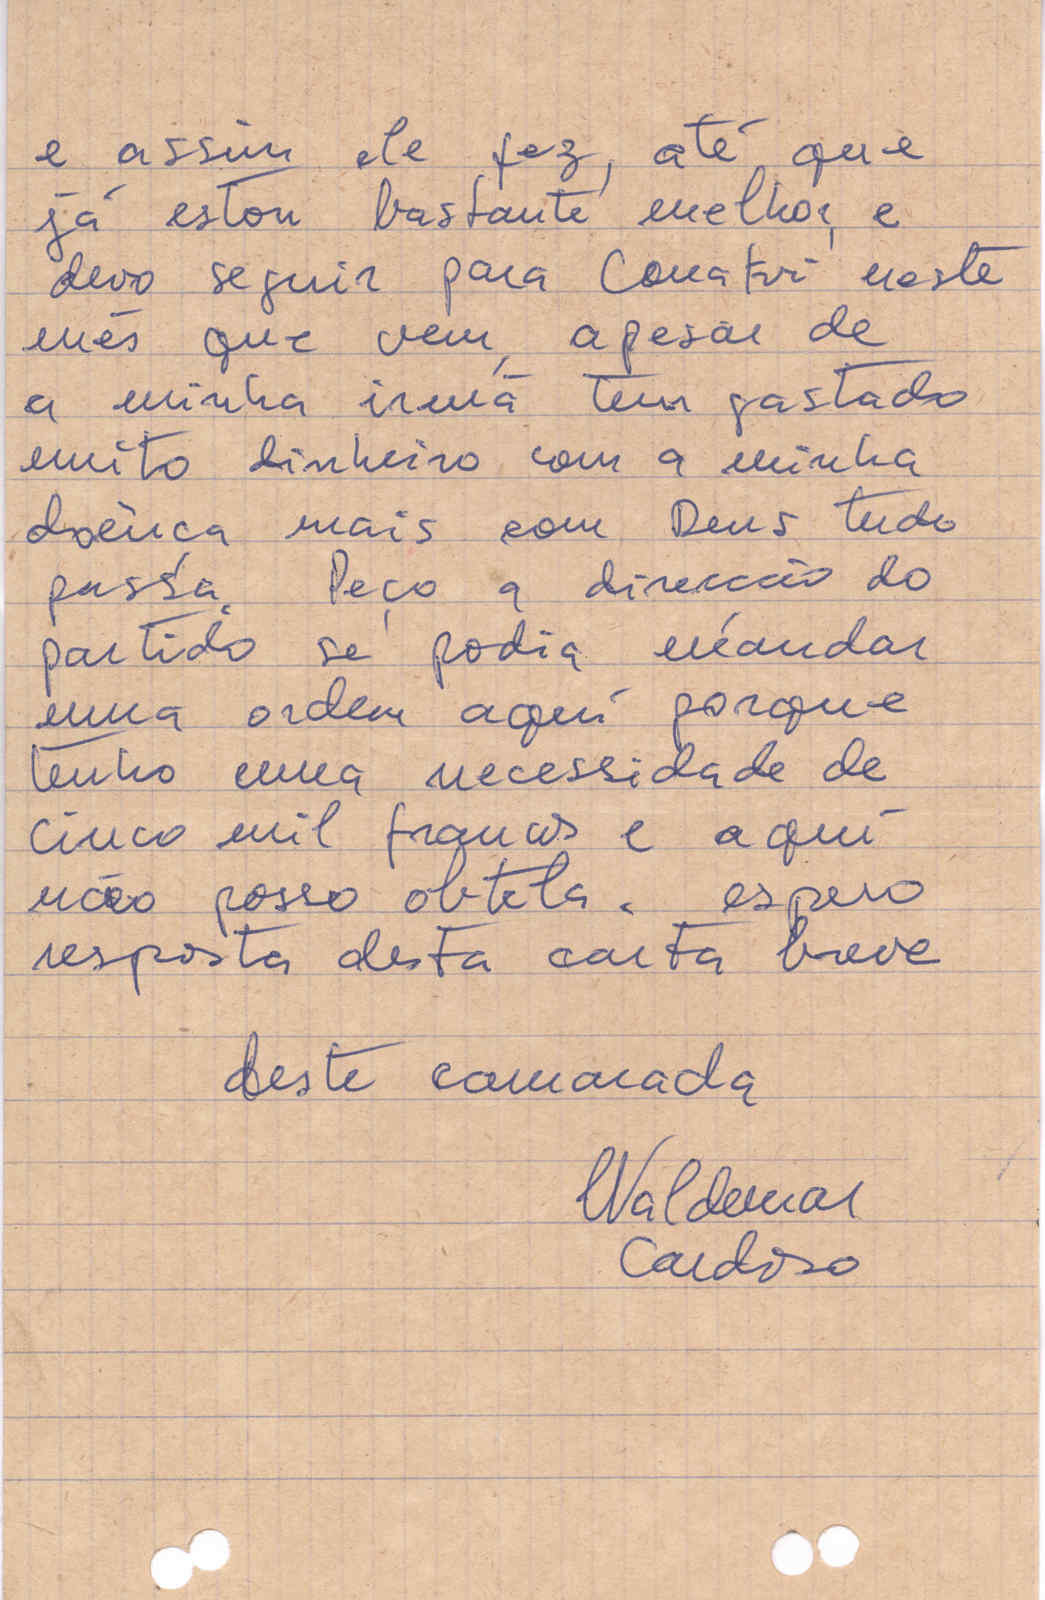 e assim ele fez, até que
já estou bastante melhor, e
devo seguir para Conakri neste
mês que vem, apesar de
a minha irmã tem gastado
muito dinheiro com a minha
doença mais com Deus tudo
passa. Peço a direcção do
partido se podia mandar
uma ordem aquí porque
tenho uma necessidade de
cinco mil francos e aquí
não posso obtela. espero
resposta desta carta breve
deste camarada
Waldemar
Cardoso